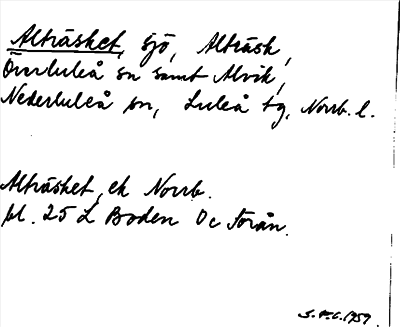 Alträsket, sjö, Alträsk,
Överluleå sn samt Alvik,
Nederluleå sn, Luleå tg, Norrb. l.
Alträsket, ek Norrb.
bl. 25 L Boden
S.F.C. 1959